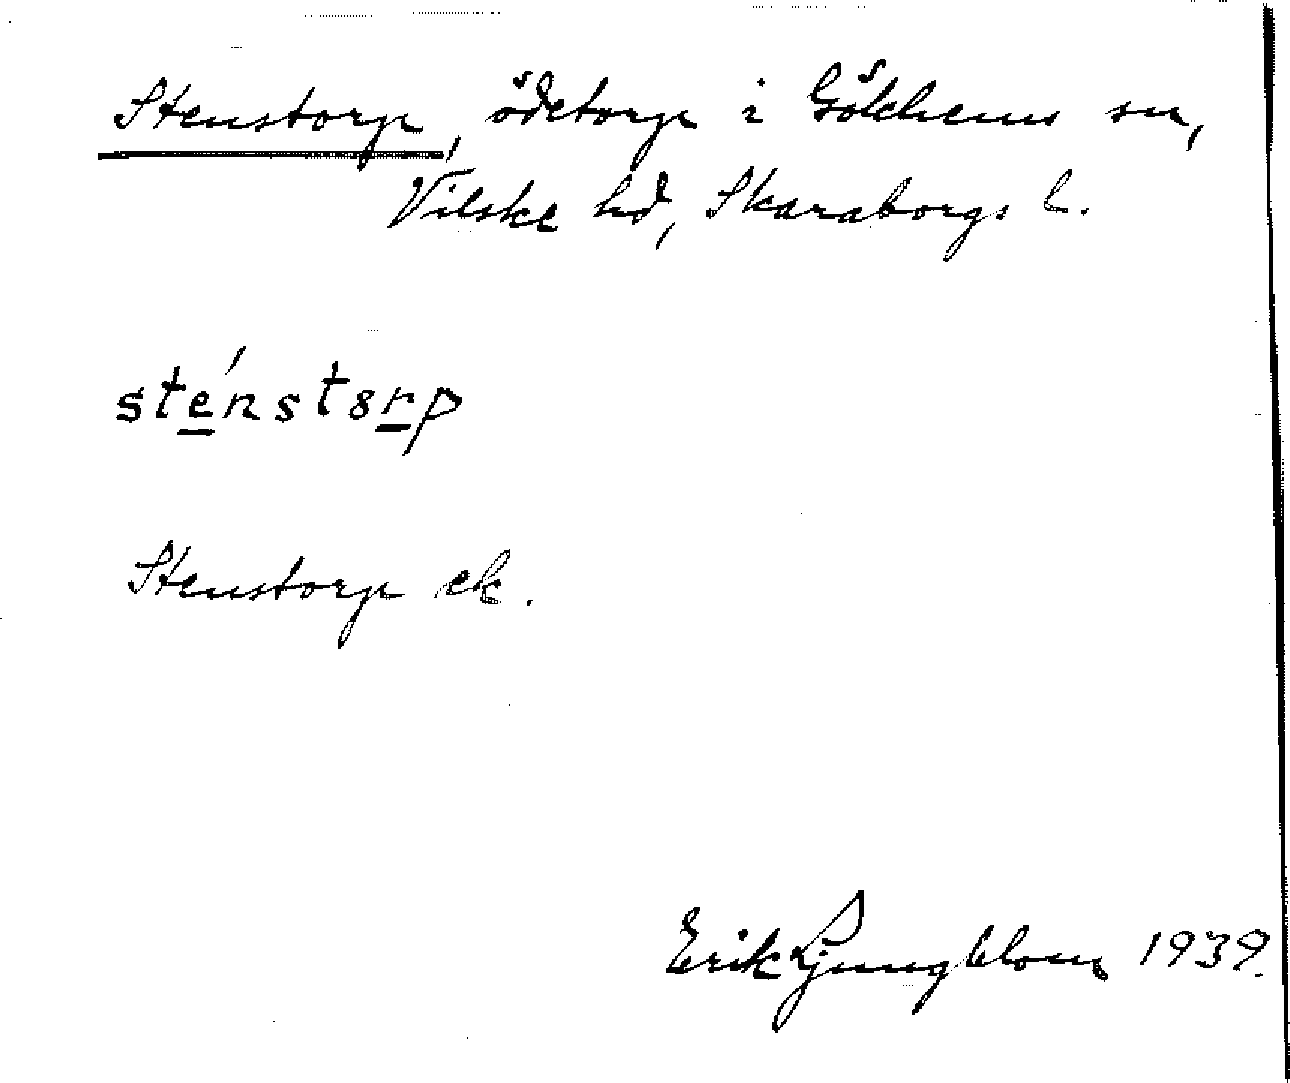 Stenstorp, ödetorp i Gökhems sn,
Vilske hd, Skaraborgs l.
sténstȣrp
Stenstorp ek.
Erik Ljungblom 1939.